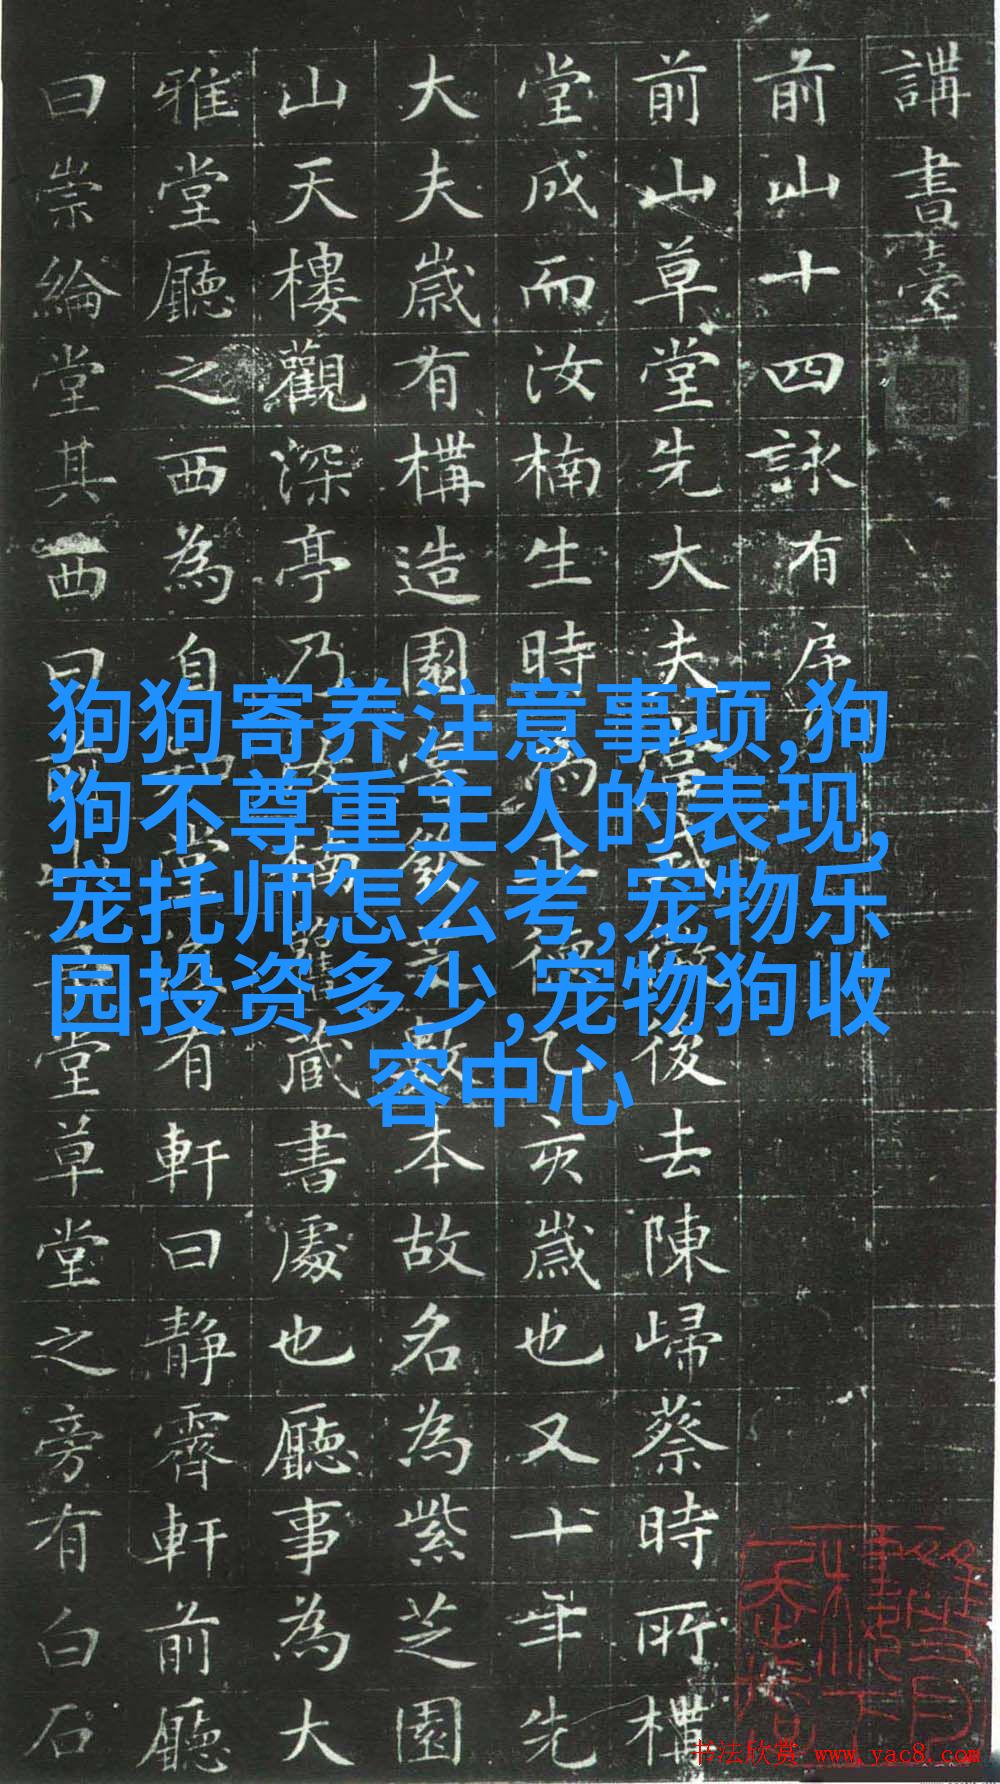 講書臺
前山十四詠有序
前山草堂先大夫
後去陳歸蔡時所構
堂成而汝楠生時為
乙亥歲也又十年先
大夫歲有構造園
數本故名為紫芝園
山天樓觀深亭乃
藏書處也廳事為大
雅堂廳之西為自
有軒曰靜霽軒前廳
曰崇綸堂其西曰
堂草堂之旁有白石
狗狗寄养注意事项,狗
狗不尊重主人的表现,
宠托师怎么考,宠物乐
园投资多少,宠物狗收
容中心
书法欣赏 www.yac8.com